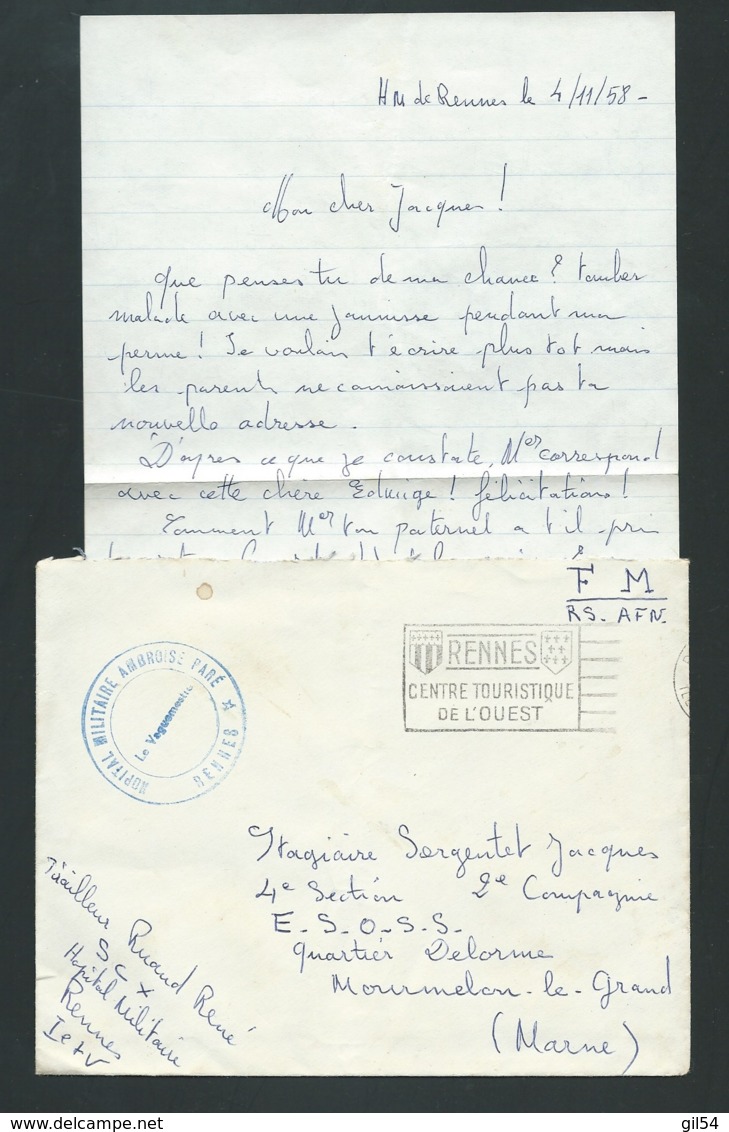 HM de Rennes le 4/11/58 -
Mon cher Jacques !
Que penses tu de ma chance ? tomber
malade avec une jaunisse pendant ma
perme ! Je voulais t'écrire plus tot mais
les parents ne connaissaient pas ta
nouvelle adresse .
D'après ce que je constate, Mer correspond
avec cette chère Edwige ! félicitations !
Comment Mer ton paternel a t'il pris
F M
RS. AFN.
RENNES
CENTRE TOURISTIQUE
DE L'OUEST
HOPITAL MILITAIRE AMBROISE PARÉ
RENNES
Le Vaguemestre
Stagiaire Sergentet Jacques
4e Section 2e Compagnie
E. S. O. S. S.
Quartier Delorme
Mourmelon-le-Grand
(Marne)
Tirailleur Ruaud René
SC X
Hopital Militaire
Rennes
I et V
delcampe.net
gil54